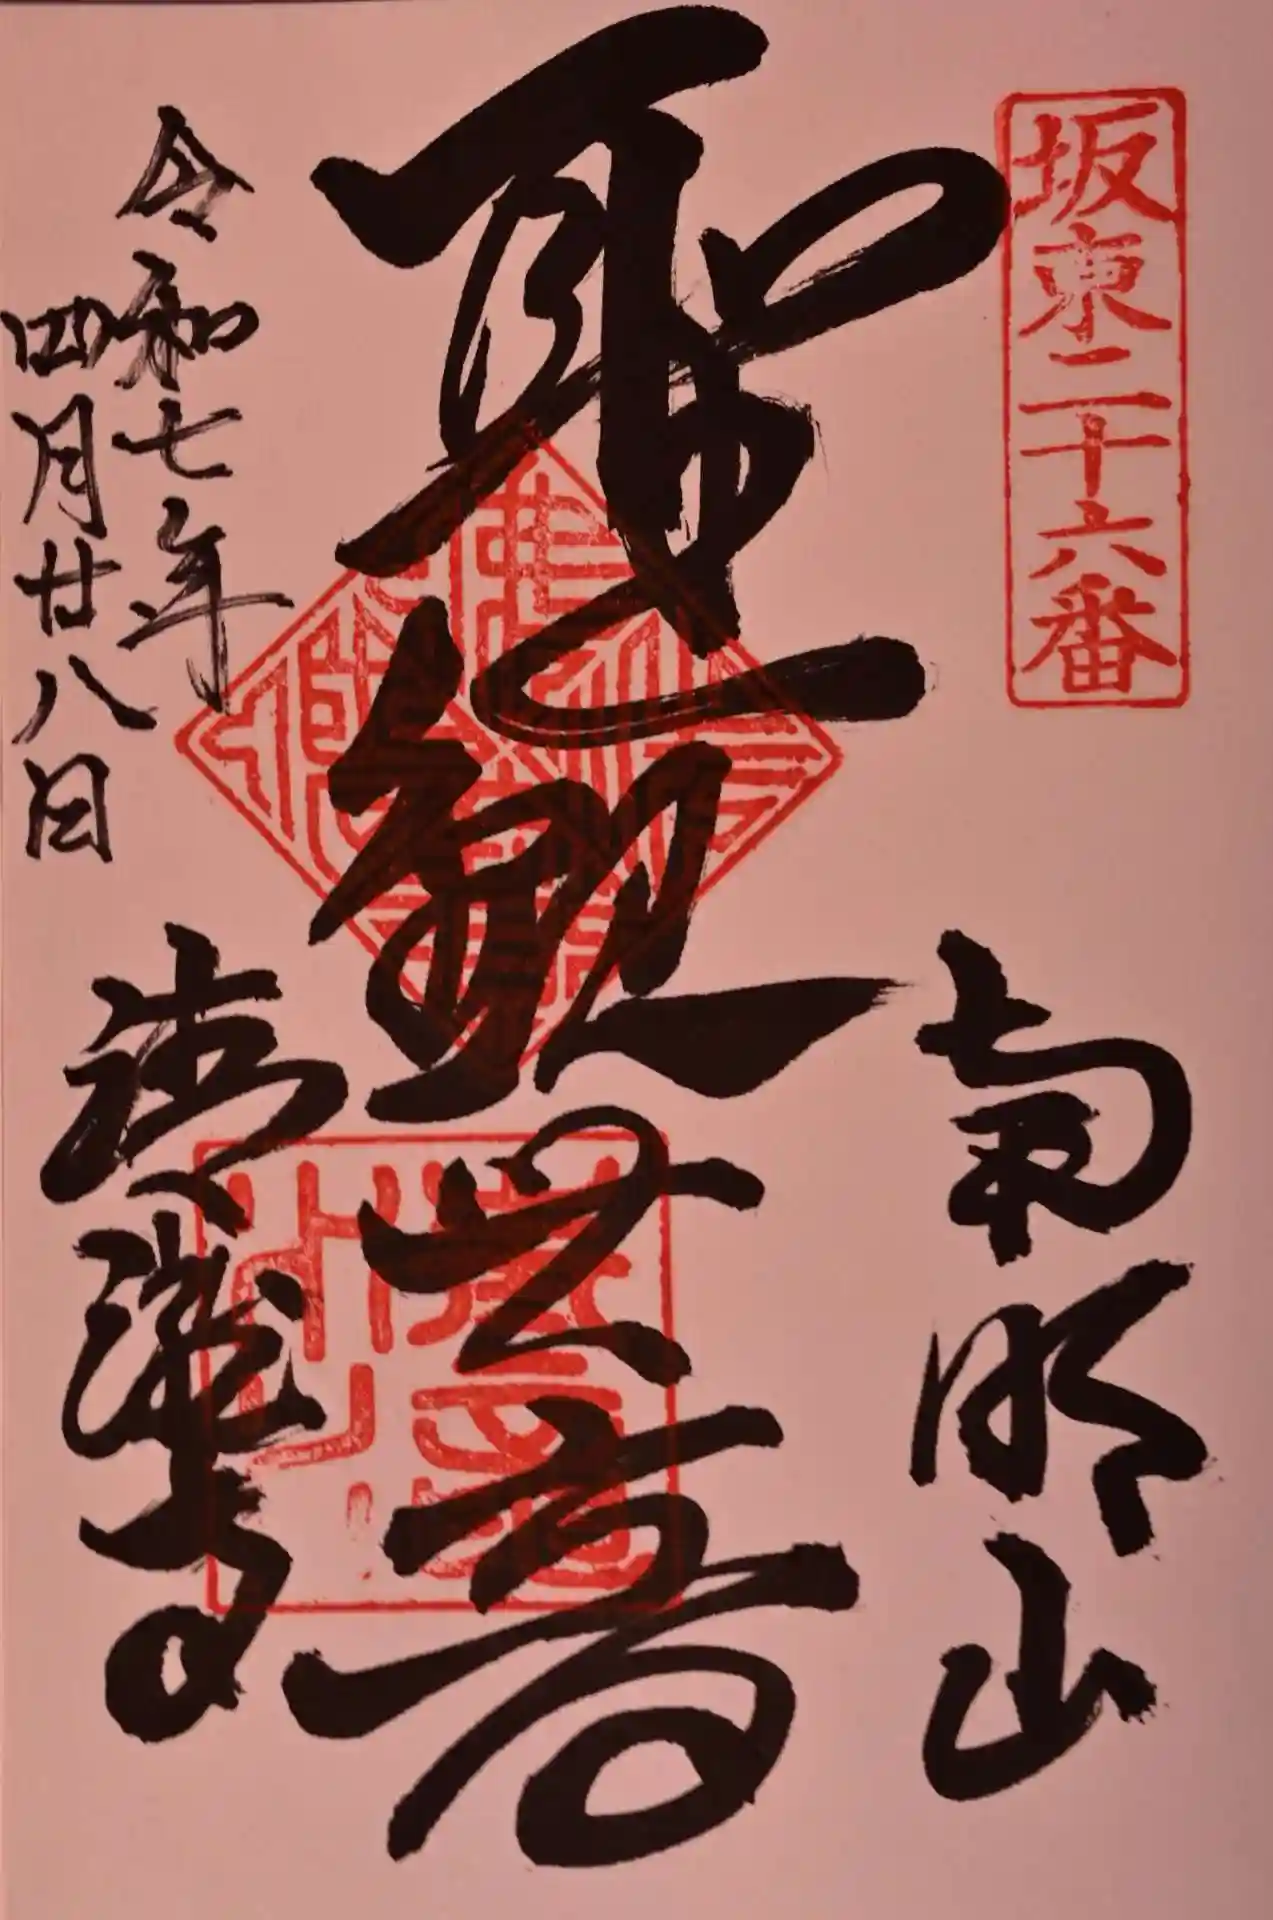 坂東二十六番
南明山
聖観世音
令和七年
四月廿八日
清瀧寺